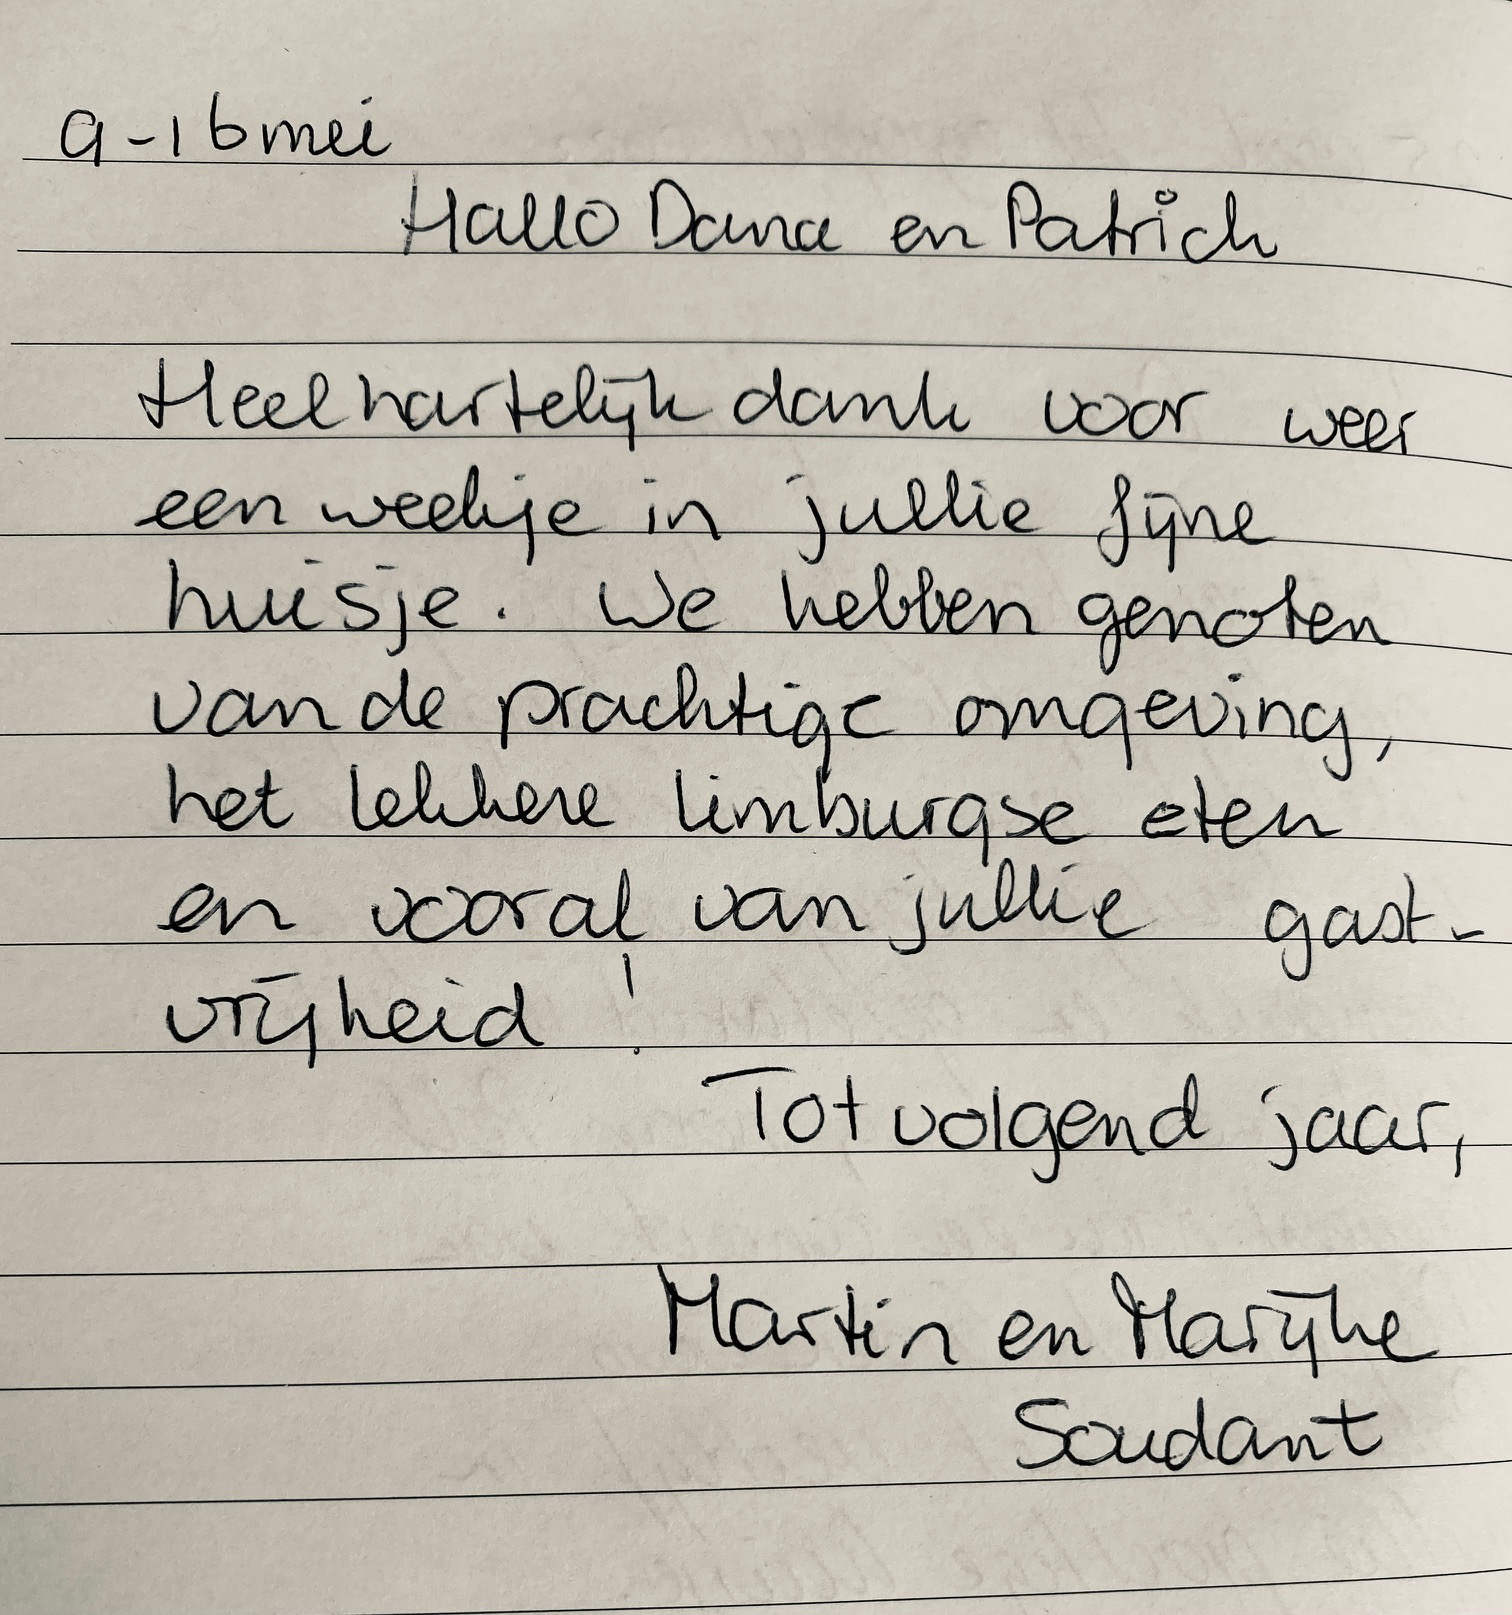 9-16 mei
Hallo Dana en Patrick
Heel hartelijk dank voor weer
een weekje in jullie fijne
huisje. We hebben genoten
van de prachtige omgeving,
het lekkere limburgse eten
en vooral van jullie gast-
vrijheid!
Tot volgend jaar,
Martin en Marijke
Soudant